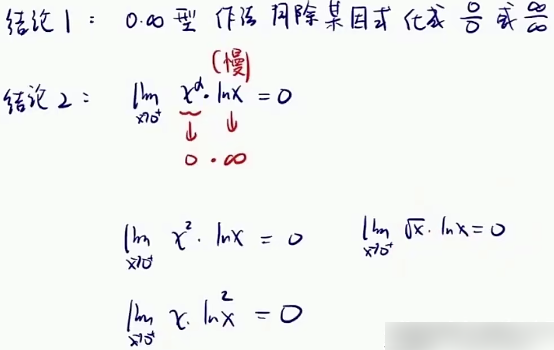 结论1: 0·∞型 作法 用除某因式 化成 0/0 或 ∞/∞
(慢)
结论2: lim x→0⁺ x^α · lnx = 0
↓ ↓
0 · ∞
lim x→0⁺ x² · lnx = 0 lim x→0⁺ √x · lnx = 0
lim x→0⁺ x · ln²x = 0